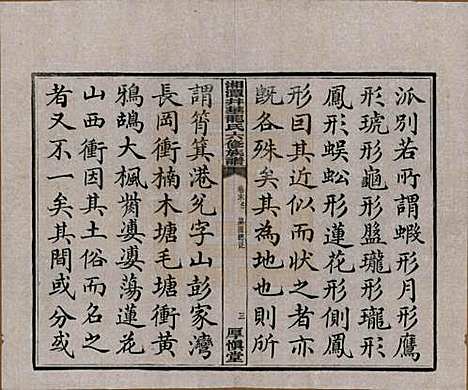 派別若所謂蝦形月形鷹
形琥形龜形盤瓏形瓏形
鳳形蜈蚣形蓮花形側鳳
形因其近似而狀之者亦
既各殊矣其為地也則所
湘潭井華龍氏六修族譜
三
厚慎堂
謂筲箕港兊字山彭家灣
長岡衝楠木塘毛塘衝黃
鴉鴣大楓𡑞婆婆蕩蓮花
山西衝因其土俗而名之
者又不一矣其間或分或